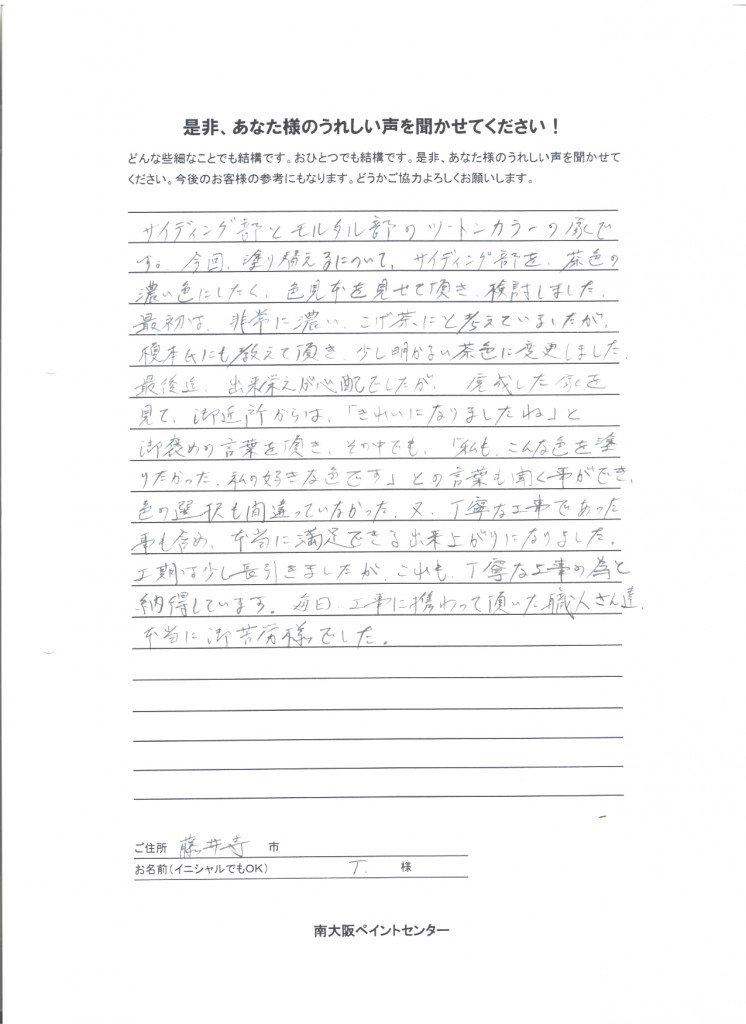 是非、あなた様のうれしい声を聞かせてください！
どんな些細なことでも結構です。おひとつでも結構です。是非、あなた様のうれしい声を聞かせて
ください。今後のお客様の参考にもなります。どうかご協力よろしくお願いします。
サイディング部とモルタル部のツートンカラーの家で
す。今回、塗り替えるについて、サイディング部を、茶色の
濃い色にしたく、色見本を見せて頂き、検討しました。
最初は、非常に濃い、こげ茶にと考えていましたが、
榎本氏にも教えて頂き、少し明かるい茶色に変更しました。
最後迄、出来栄えが心配でしたが、完成した家を
見て、御近所からは、「きれいになりましたね」と
御褒めの言葉を頂き、その中でも、「私も、こんな色を塗
りたかった、私の好きな色です」との言葉も聞く事ができ、
色の選択も間違っていなかった、又、丁寧な工事であった
事も含め、本当に満足できる出来上がりになりました。
工期は少し長引きましたが、これも、丁寧な工事の為と
納得しています。毎日、工事に携わって頂いた職人さん達、
本当に御苦労様でした。
ご住所 藤井寺 市
お名前(イニシャルでもOK) T. 様
南大阪ペイントセンター